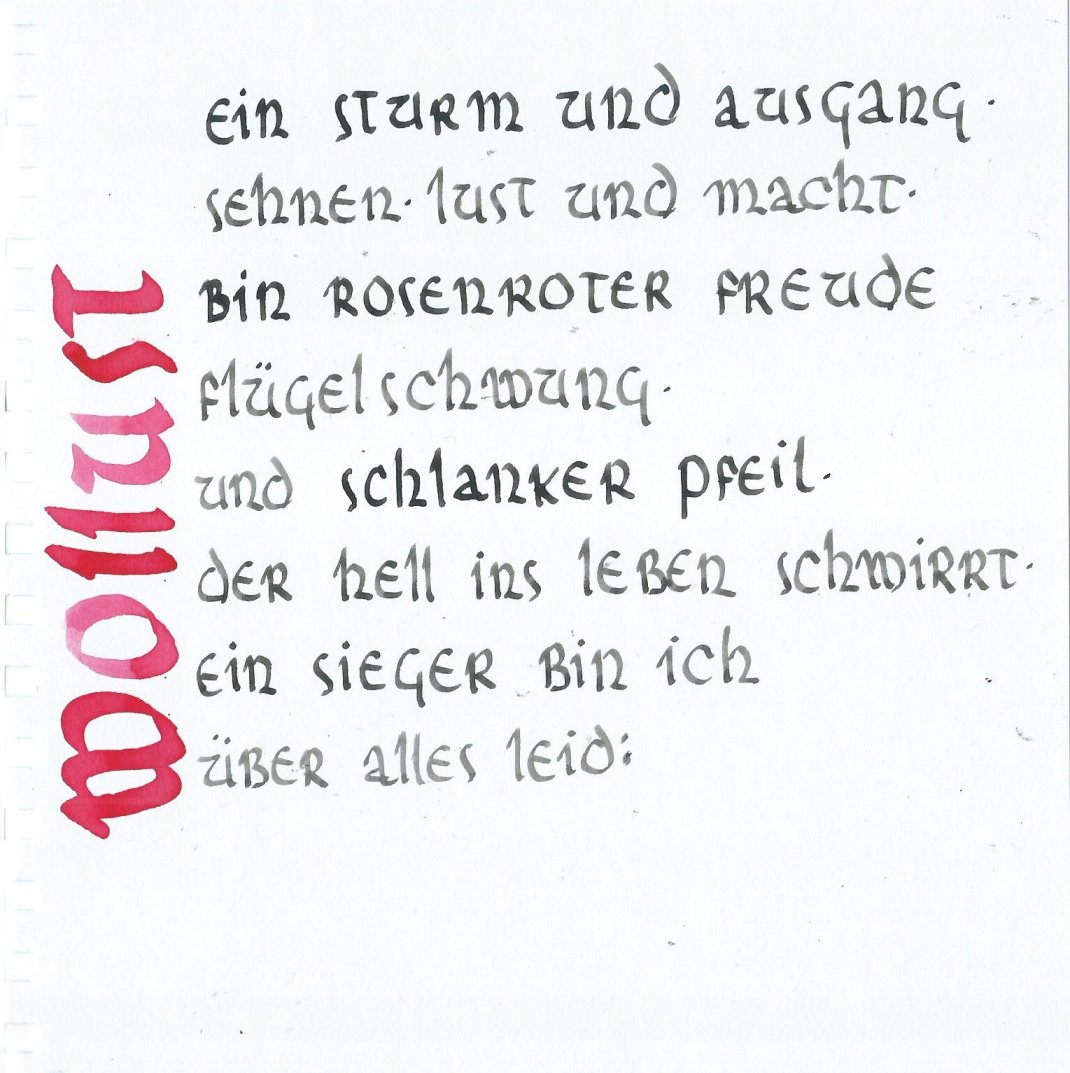 wollust
ein sturm und ausgang·
sehnen· lust und macht·
bin rosenroter freude
flügelschwung·
und schlanker pfeil·
der hell ins leben schwirrt·
ein sieger bin ich
über alles leid: